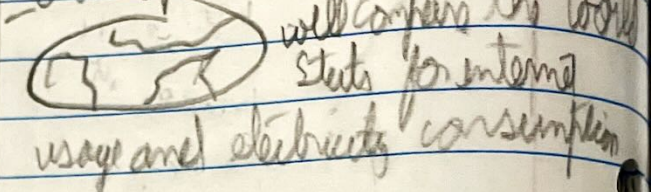 will compare the world
stats for internet
usage and electricity consumption